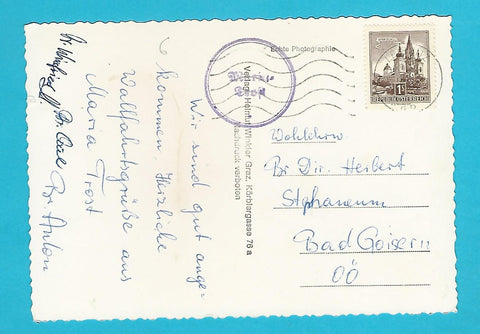 Echte Photographie
Verlag Helfried Winkler Graz, Körblergasse 76 a
Nachdruck verboten
1S
REPUBLIK ÖSTERREICH
Wir sind gut ange-
kommen. Herzliche
Wallfahrtsgrüße aus
Maria Trost
Br. Anton
Br. Dir. Herbert
Stephaneum
Bad Goisern
OÖ